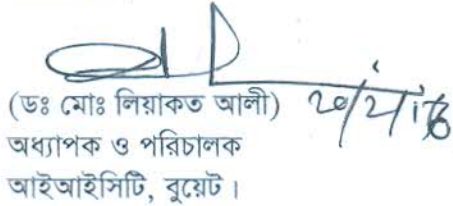 (ডঃ মোঃ লিয়াকত আলী)
অধ্যাপক ও পরিচালক
আইআইসিটি, বুয়েট।